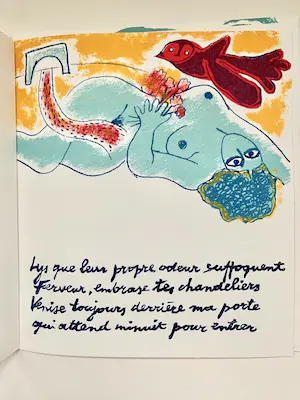 Lys que leur propre odeur suffoquent
Ferveur, embrase tes chandeliers
Venise toujours derrière ma porte
qui attend minuit pour entrer